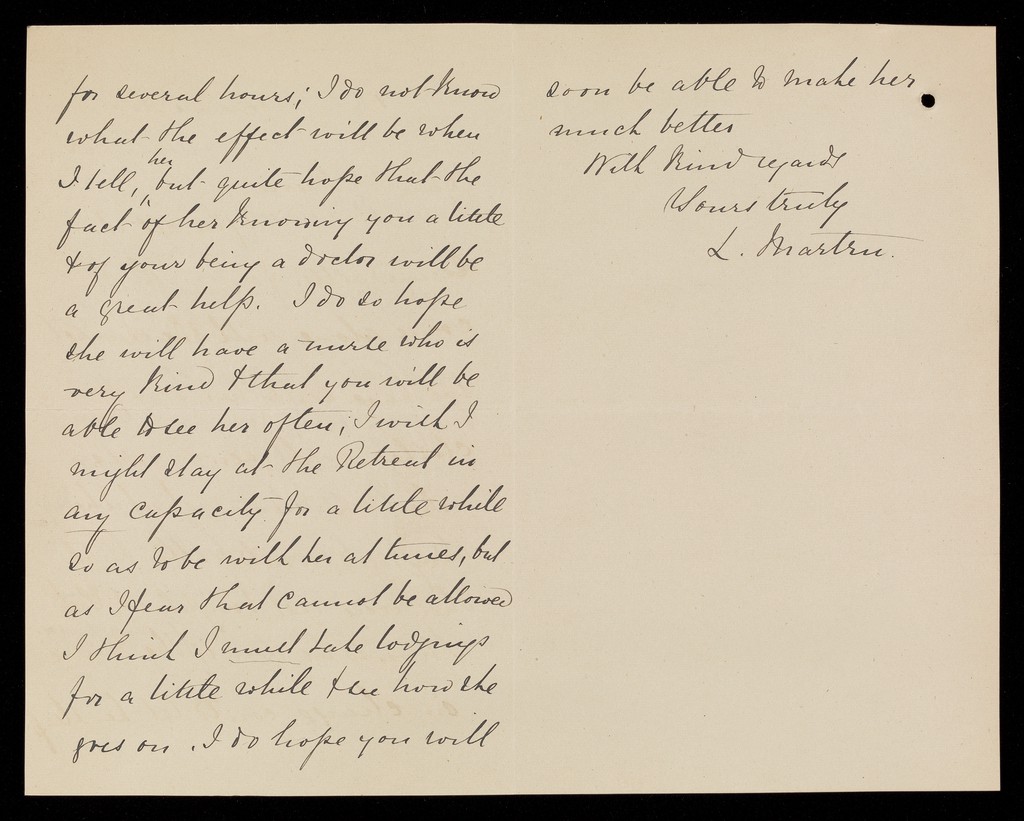 for several hours; I do not know
what the effect will be when
I tell, her but quite hope that the
fact of her knowing you a little
& of your being a doctor will be
a great help. I do so hope
she will have a nurse who is
very kind & that you will be
able to see her often; I wish I
might stay at the Retreat in
any capacity for a little while
so as to be with her at times, but
as I fear that cannot be allowed
I think I must take lodgings
for a little while & see how she
goes on. I do hope you will
soon be able to make her
much better
With kind regards
Yours truly
L. Martin.